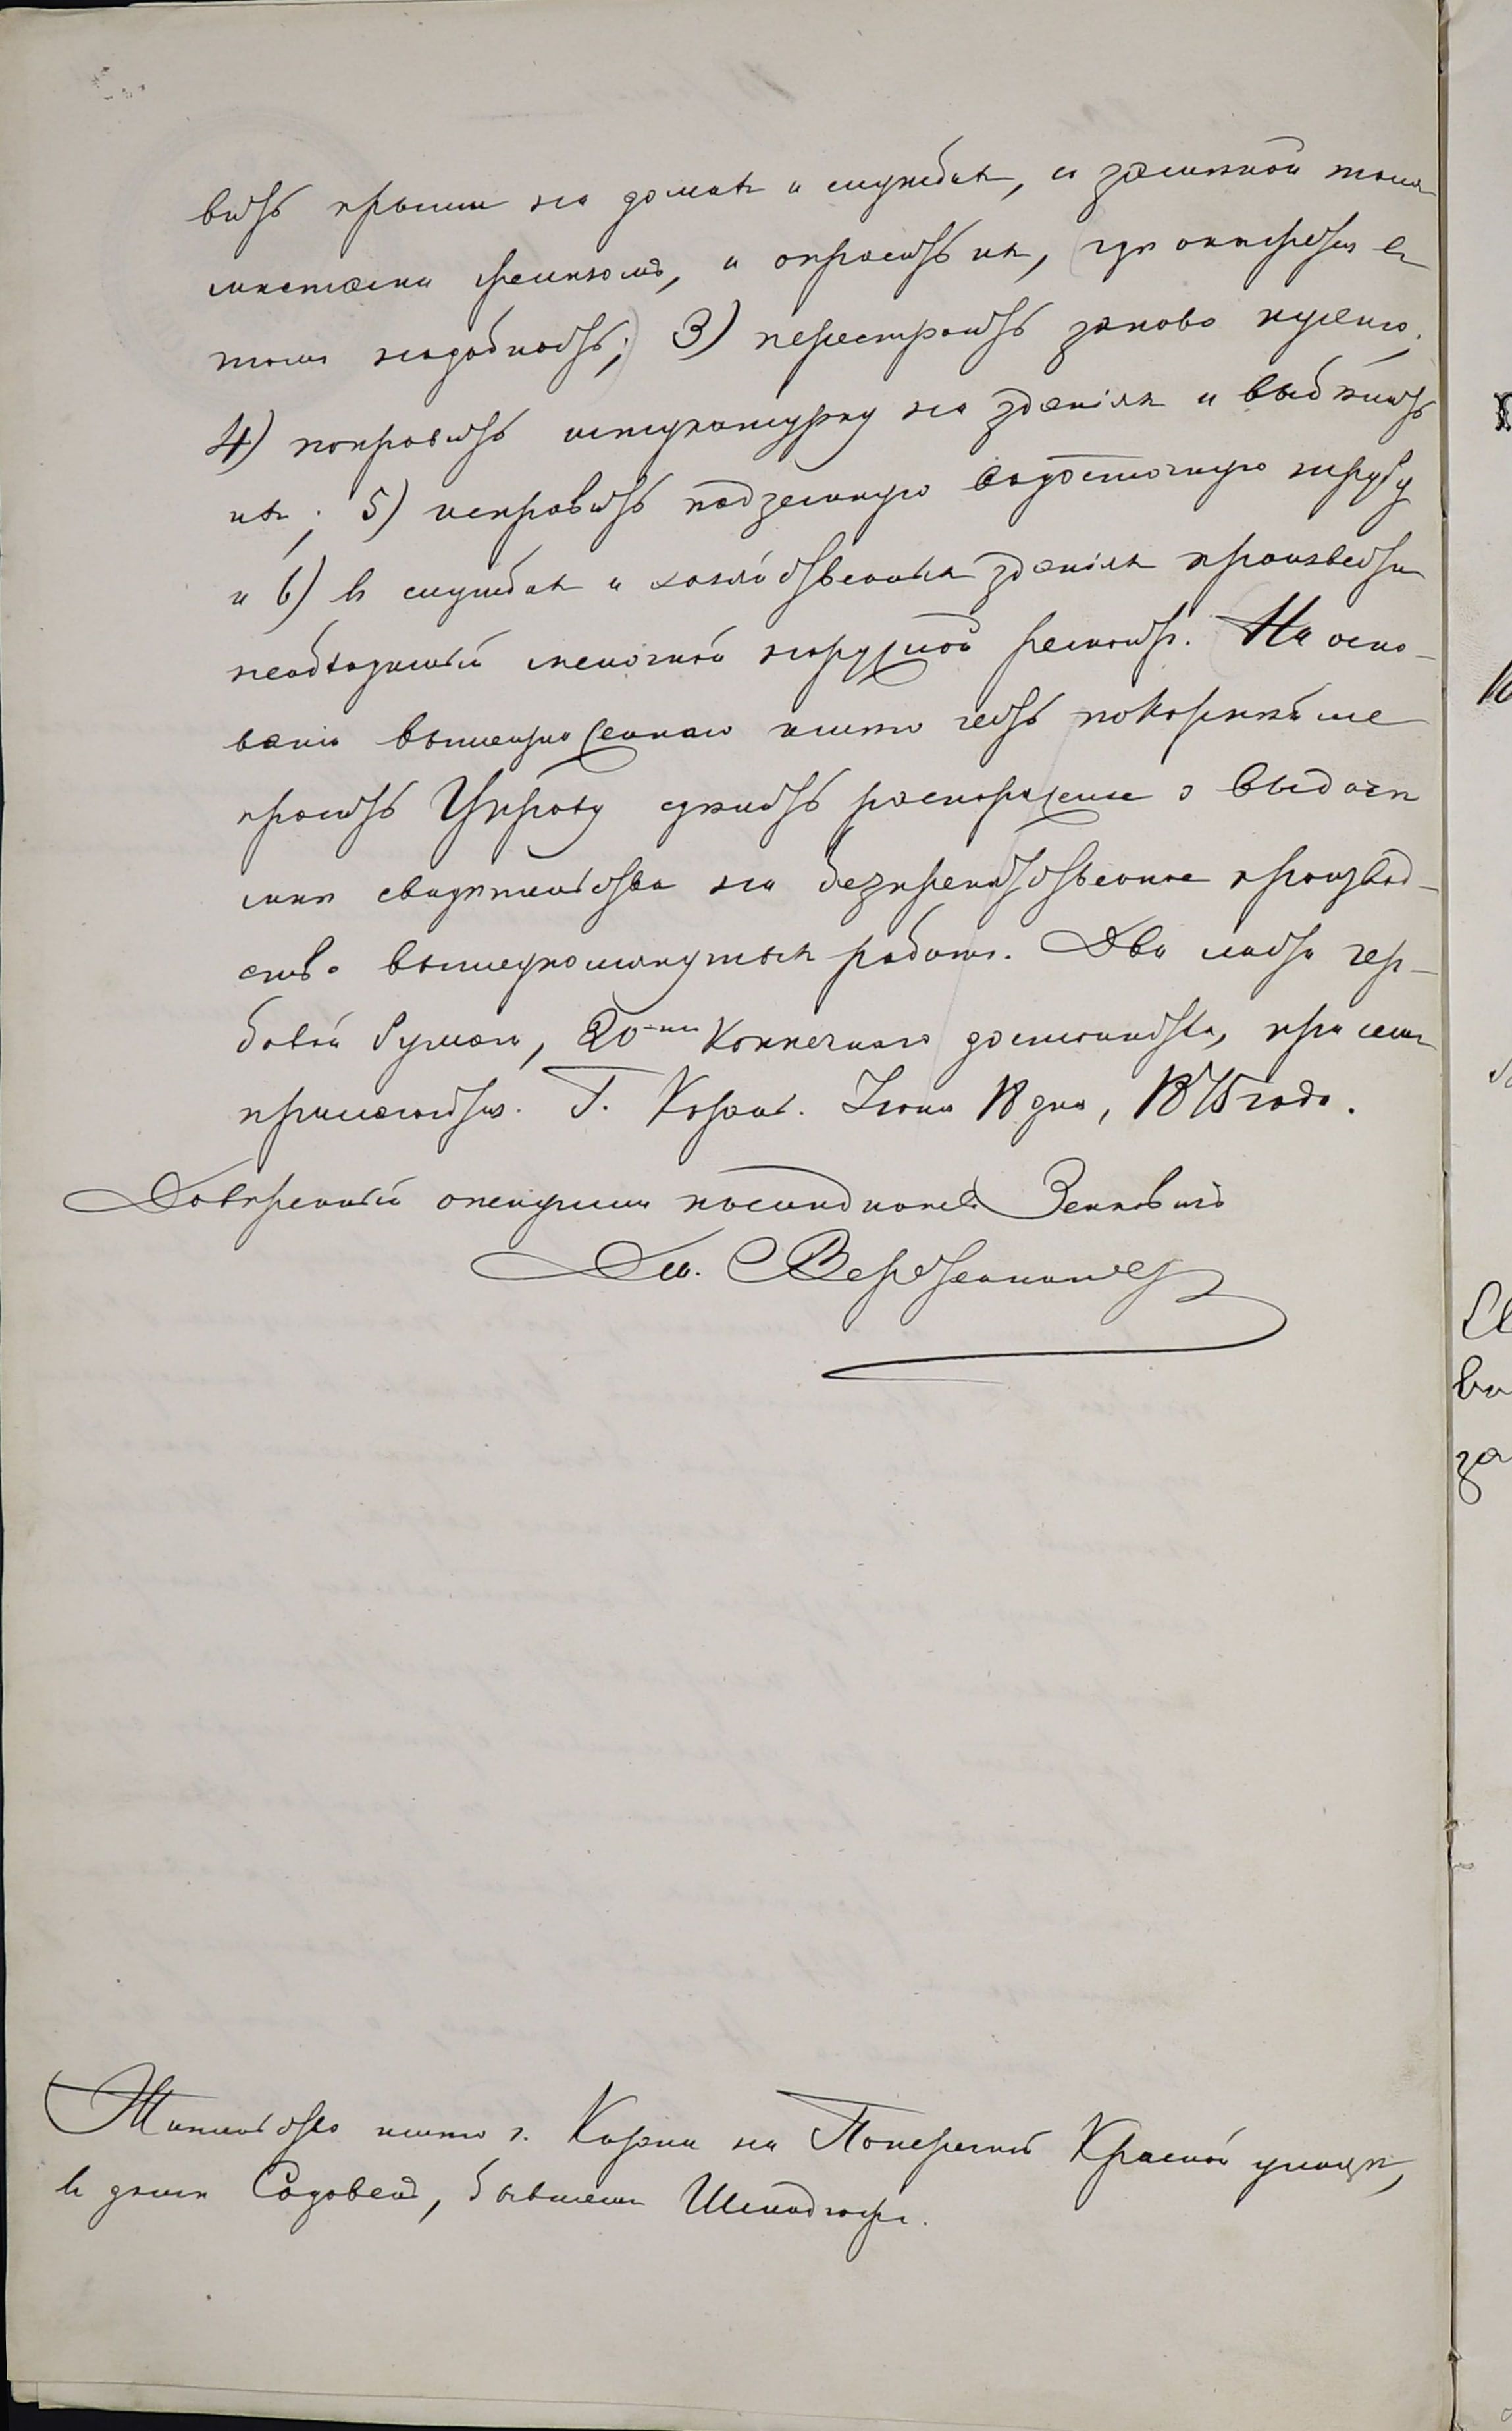 вить крыши на домахъ и службахъ, съ замѣной тамъ
мѣстами желѣзомъ, и окрасить ихъ, гдѣ окажется въ
томъ надобность; 3) перестроить заново кухню;
4) поправить штукатурку на зданіяхъ и выбѣлить
ихъ; 5) исправить подземную водосточную трубу
и 6) въ службахъ и хозяйственныхъ зданіяхъ произвести
необходимый мелочной наружной ремонтъ. На осно-
ваніи вышеизложеннаго имѣю честь покорнѣйше
просить Управу сдѣлать распоряженіе о выдачѣ
мнѣ свидѣтельства на безпрепятственное производ-
ство вышеупомянутыхъ работъ. Два листа гер-
бовой бумаги, 20-ти копѣечнаго достоинства, при семъ
прилагаются. Г. Казань. Іюня 18 дня, 1875 года.
Довѣренный опекунши
Дм.
Жительство имѣю г. Казани на Поперечной Красной улицѣ,
въ домѣ Садовень, бывшемъ